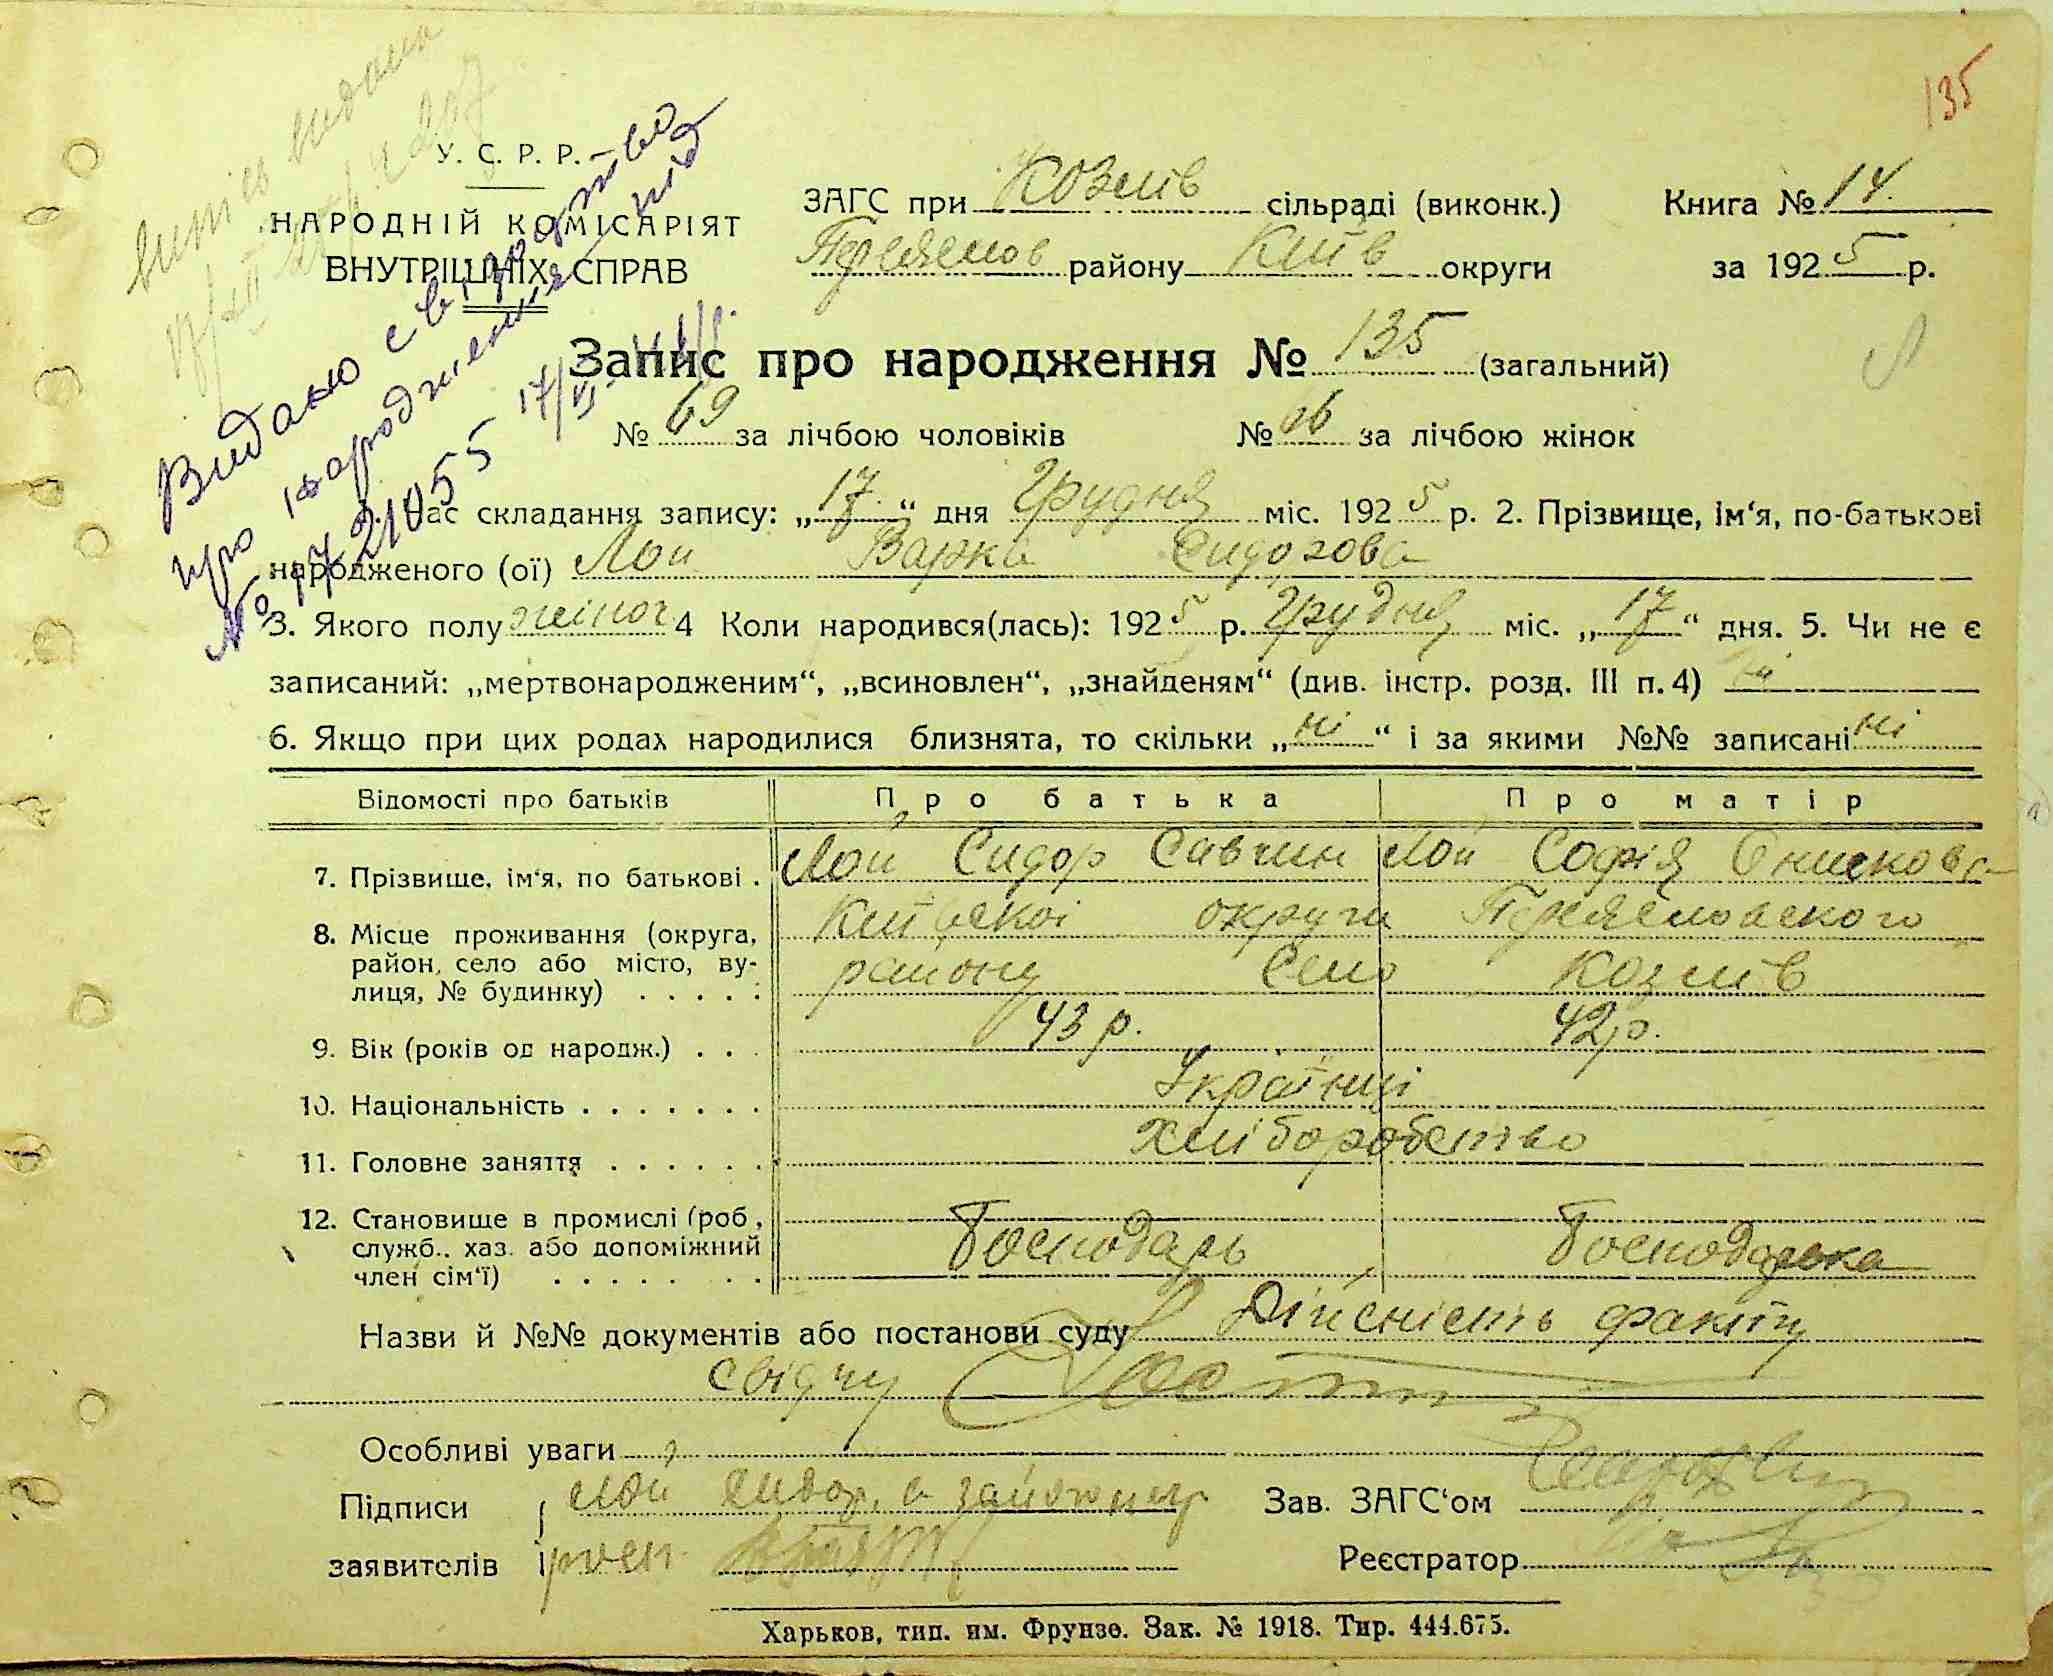 135
У. С. Р. Р.
НАРОДНІЙ КОМІСАРІЯТ
ВНУТРІШНІХ СПРАВ
випись видано
Видано свідоцтво
про народження під
№ 21055 17/VI
ЗАГС при Козлів сільраді (виконк.) Книга № 14.
Переяслов району Київ округи за 1925 р.
Запис про народження № 135 (загальний)
№ 69 за лічбою чоловіків № 66 за лічбою жінок
1. Час складання запису: „17“ дня Грудня міс. 1925 р. 2. Прізвище, ім‘я, по-батькові
народженого (ої) Лой Варка Сидорова
3. Якого полу жіноч 4 Коли народився(лась): 1925 р. Грудня міс. „17“ дня. 5. Чи не є
записаний: „мертвонародженим“, „всиновлен“, „знайденям“ (див. інстр. розд. III п. 4) ні
6. Якщо при цих родах народилися близнята, то скільки „ні“ і за якими №№ записані ні
Відомості про батьків Про батька Про матір
7. Прізвище, ім‘я, по батькові . Лой Сидор Савчин Лой Софія Онисковa
8. Місце проживання (округа, Київської округи Переясловського
район, село або місто, ву- району Село Козлів
лиця, № будинку) . . . . .
9. Вік (років од народж.) . . . 43 р. 42 р.
10. Національність . . . . . . . Українці
11. Головне заняття . . . . . . Хліборобство
12. Становище в промислі (роб., Господарь Господарка
служб., хаз. або допоміжний
член сім‘ї) . . . . . . .
Назви й №№ документів або постанови суду Дійсність факту
свідчу
Особливі уваги
Підписи Лой Сидор, а Зав. ЗАГС‘ом
заявителів Реєстратор
Харьков, тип. им. Фрунзе. Зак. № 1918. Тир. 444.675.